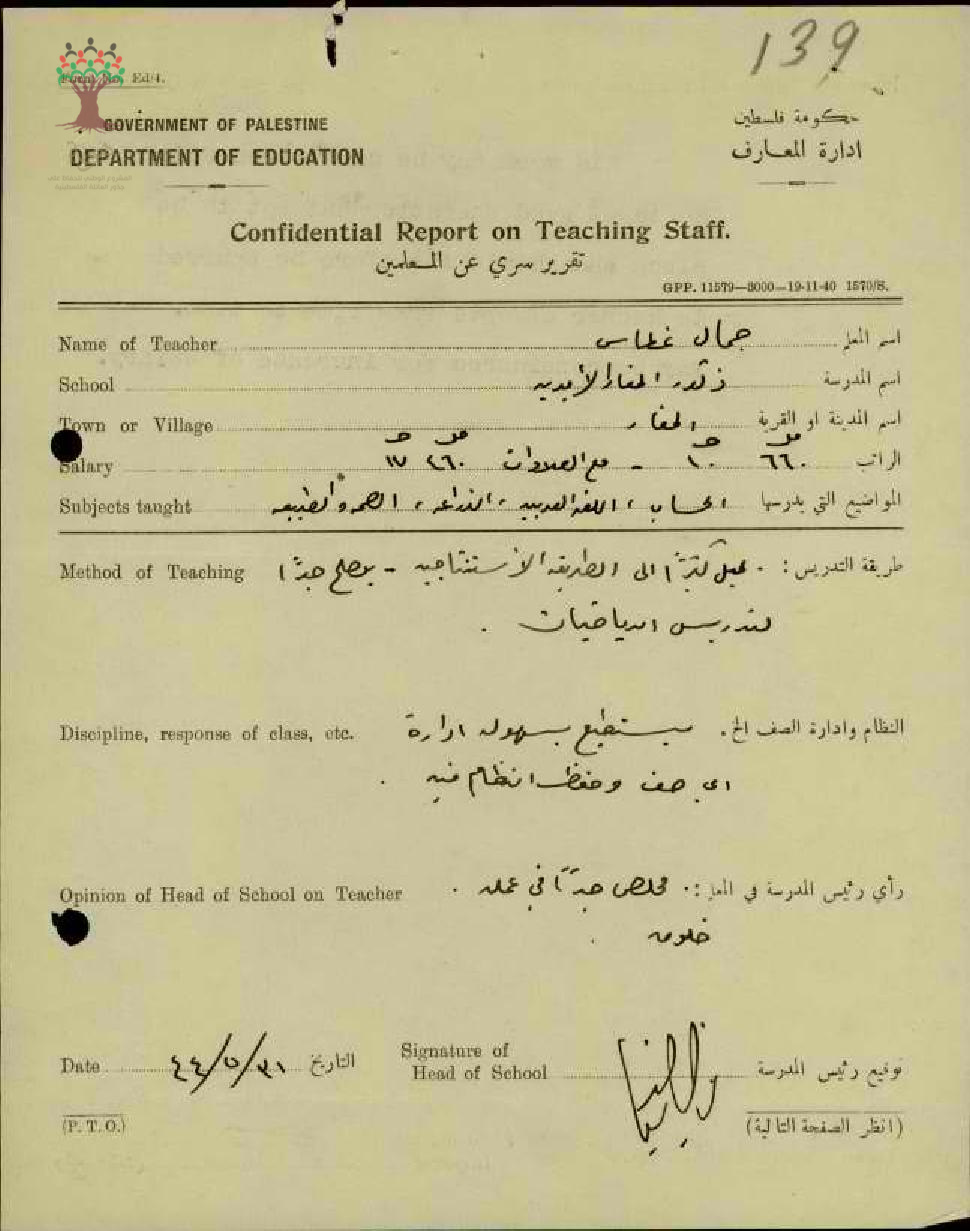 139
Form No. Ed/4.
GOVERNMENT OF PALESTINE
حكومة فلسطين
DEPARTMENT OF EDUCATION
ادارة المعارف
Confidential Report on Teaching Staff.
تقرير سري عن المعلمين
GPP. 11579—3000—19-11-40 1570/S.
Name of Teacher جمال غطاس اسم المعلم
School ذكور المغار الأميرية اسم المدرسة
Town or Village المغار اسم المدينة او القرية
Salary ٦٦٠ مل ١٠ ج - مع العلاوات ٤٦٠ مل ١٧ ج الراتب
Subjects taught الحساب ، اللغة العربية ، الزراعة ، الصحة والطبيعة المواضيع التي يدرسها
Method of Teaching طريقة التدريس : يميل كثيرًا الى الطريقة الأستنتاجية - يصلح جدًا
لتدريس الرياضيات .
Discipline, response of class, etc. النظام وادارة الصف الخ . يستطيع بسهولة ادارة
اي صف وحفظ انتظام فيه .
Opinion of Head of School on Teacher رأي رئيس المدرسة في المعلم : مخلص جدًا في عمله .
خلوق .
Date ٤٤/٥/٣١ التاريخ
Signature of
Head of School توقيع رئيس المدرسة
(P. T. O.) (انظر الصفحة التالية)